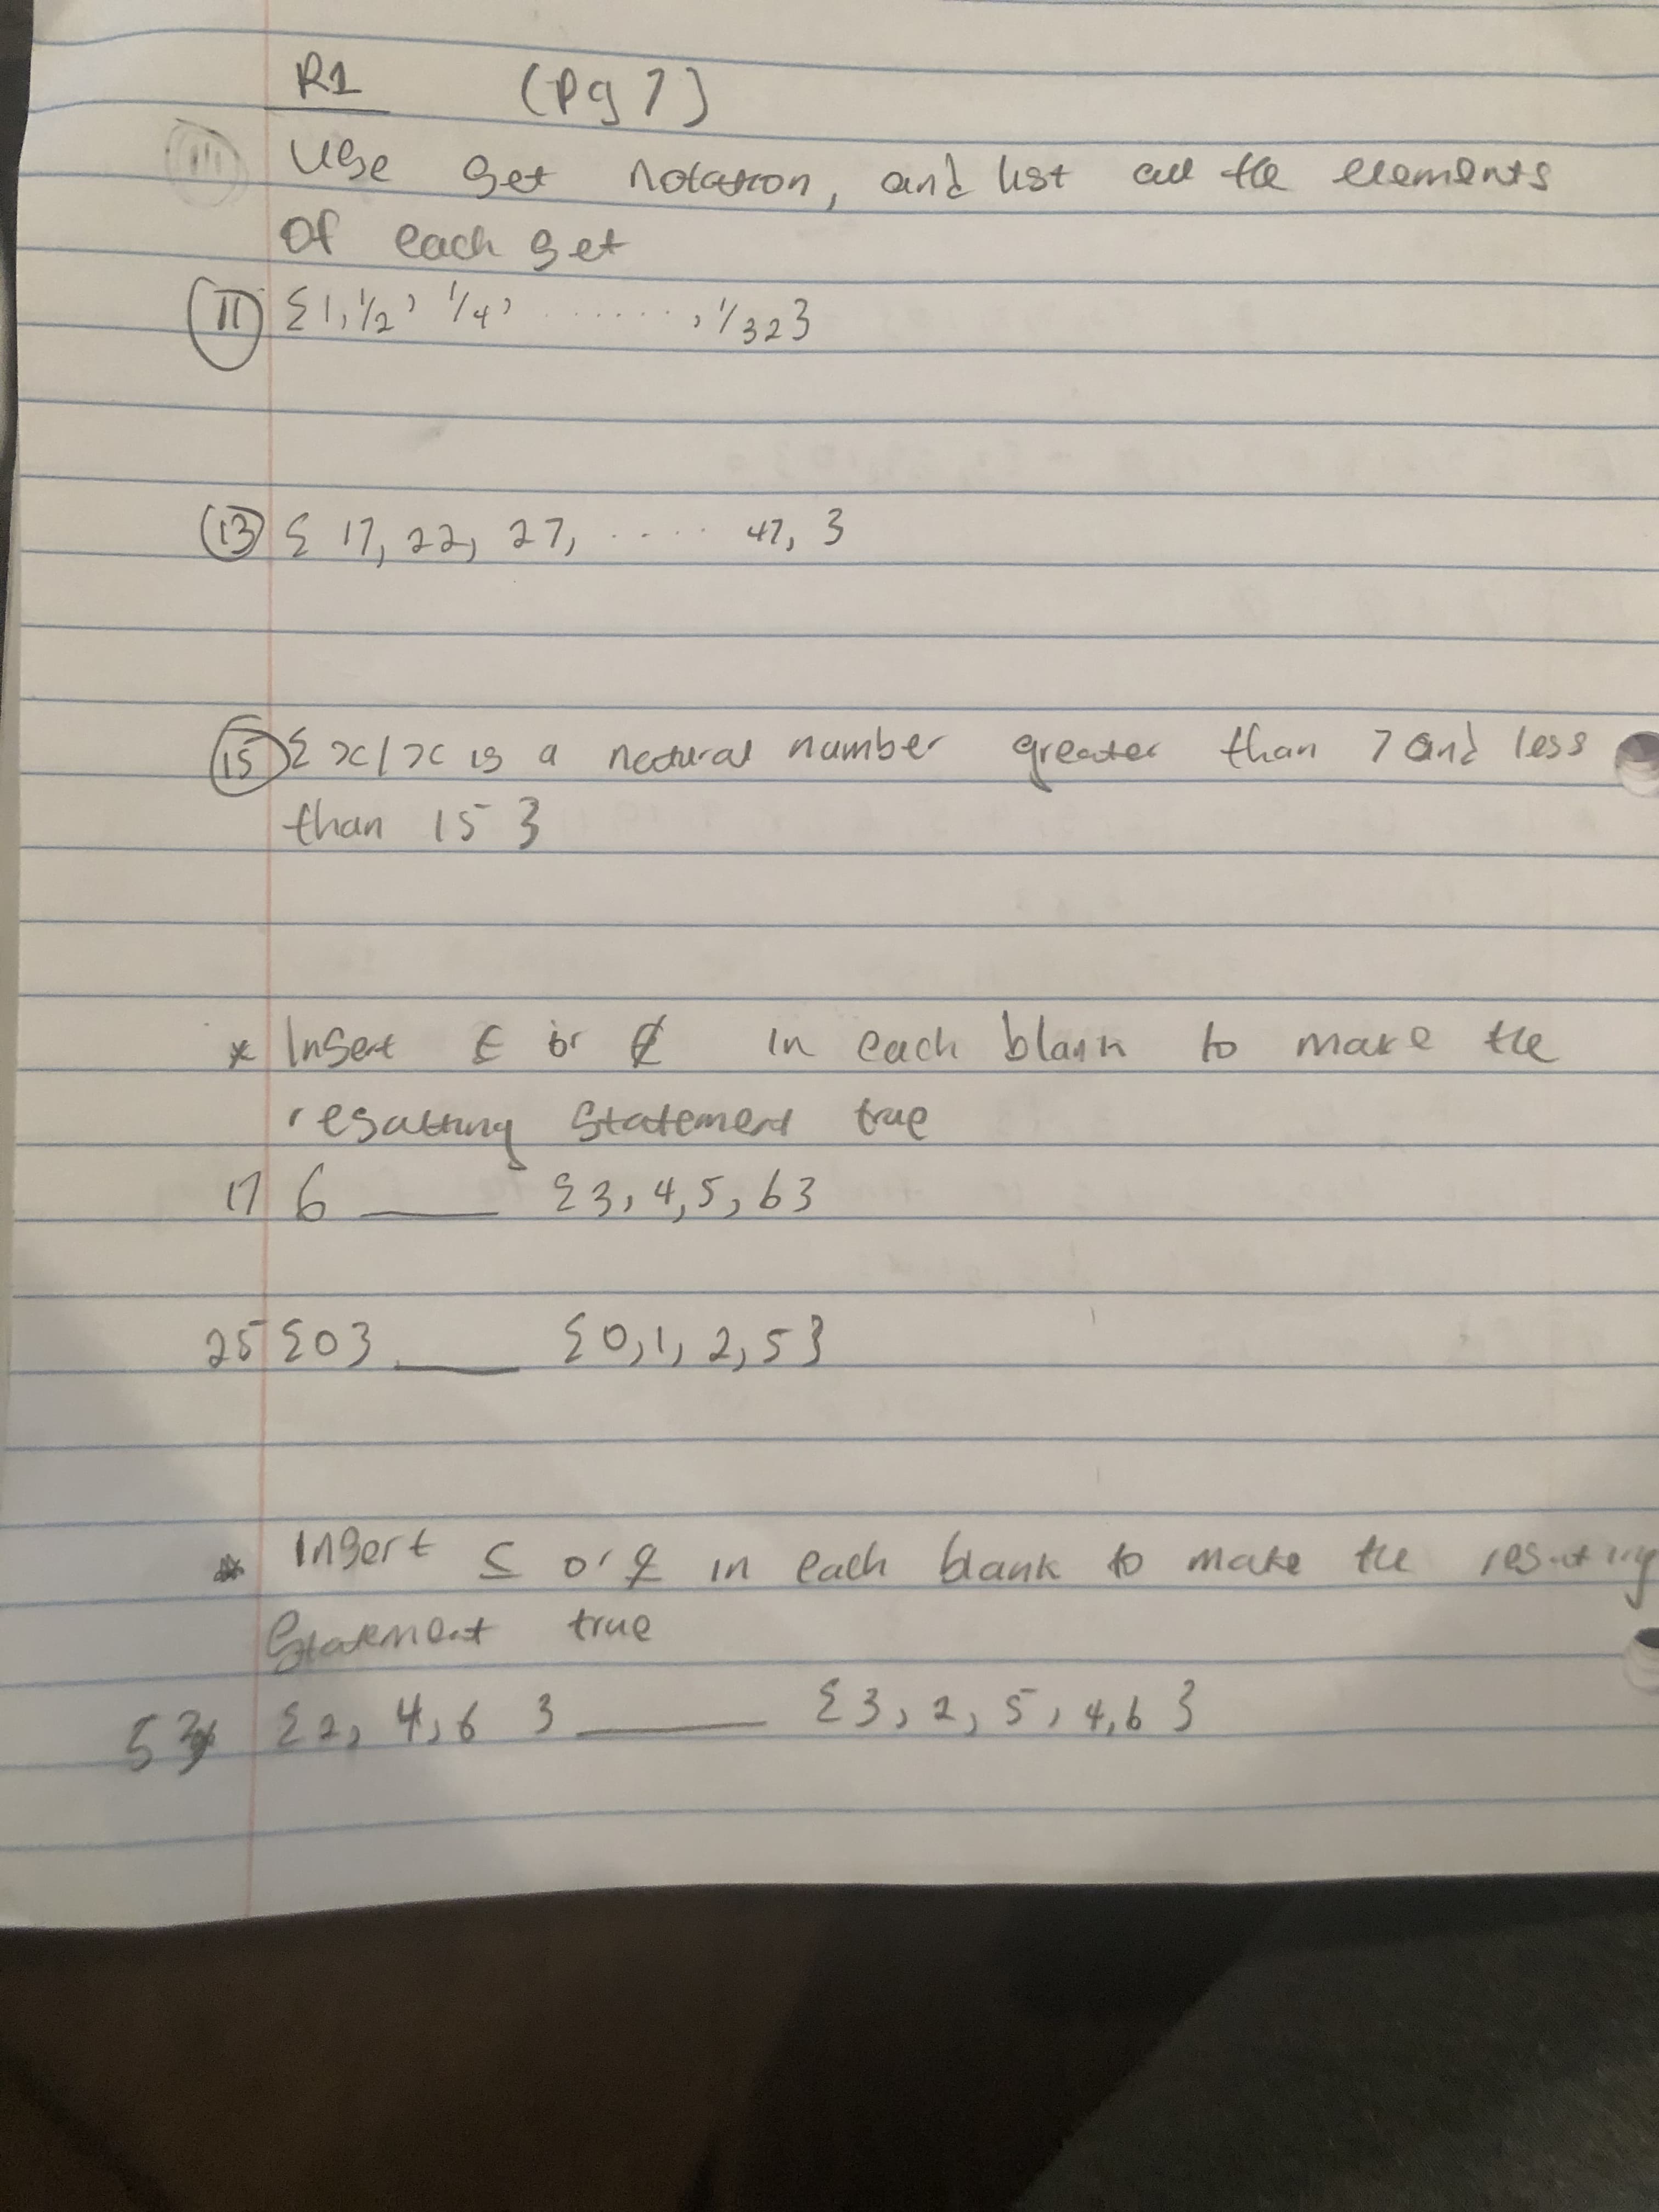 R1 (Pg 7)
Use set notation, and list all the elements
of each set
11 {1, 1/2, 1/4, ......., 1/32}
13 { 17, 22, 27, ..... 47, }
15 { x/x is a natural number greater than 7 and less
than 15 }
* Insert ∈ or ∉ in each blank to make the
resulting statement true
17 6 ____ {3, 4, 5, 6}
25 {0} ____ {0, 1, 2, 5}
* Insert ⊆ or ⊈ in each blank to make the resulting
Statement true
53 {2, 4, 6 } ____ {3, 2, 5, 4, 6 }